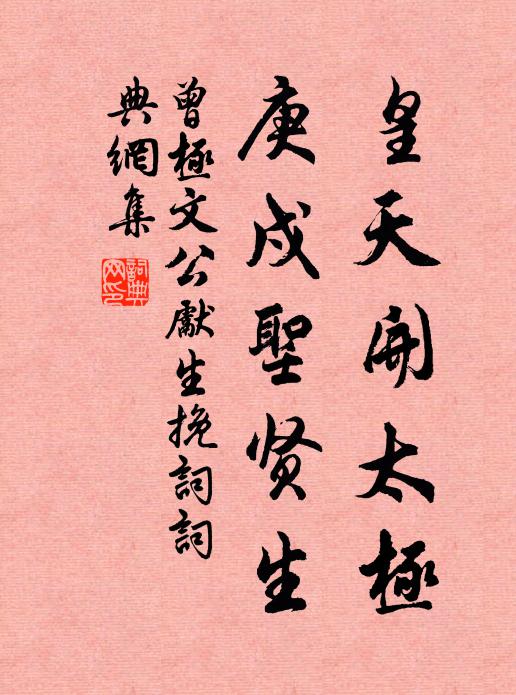 皇天開太極
庚戌聖贤生
曾極文公獻生挽詞詞
典網集
詞典網印